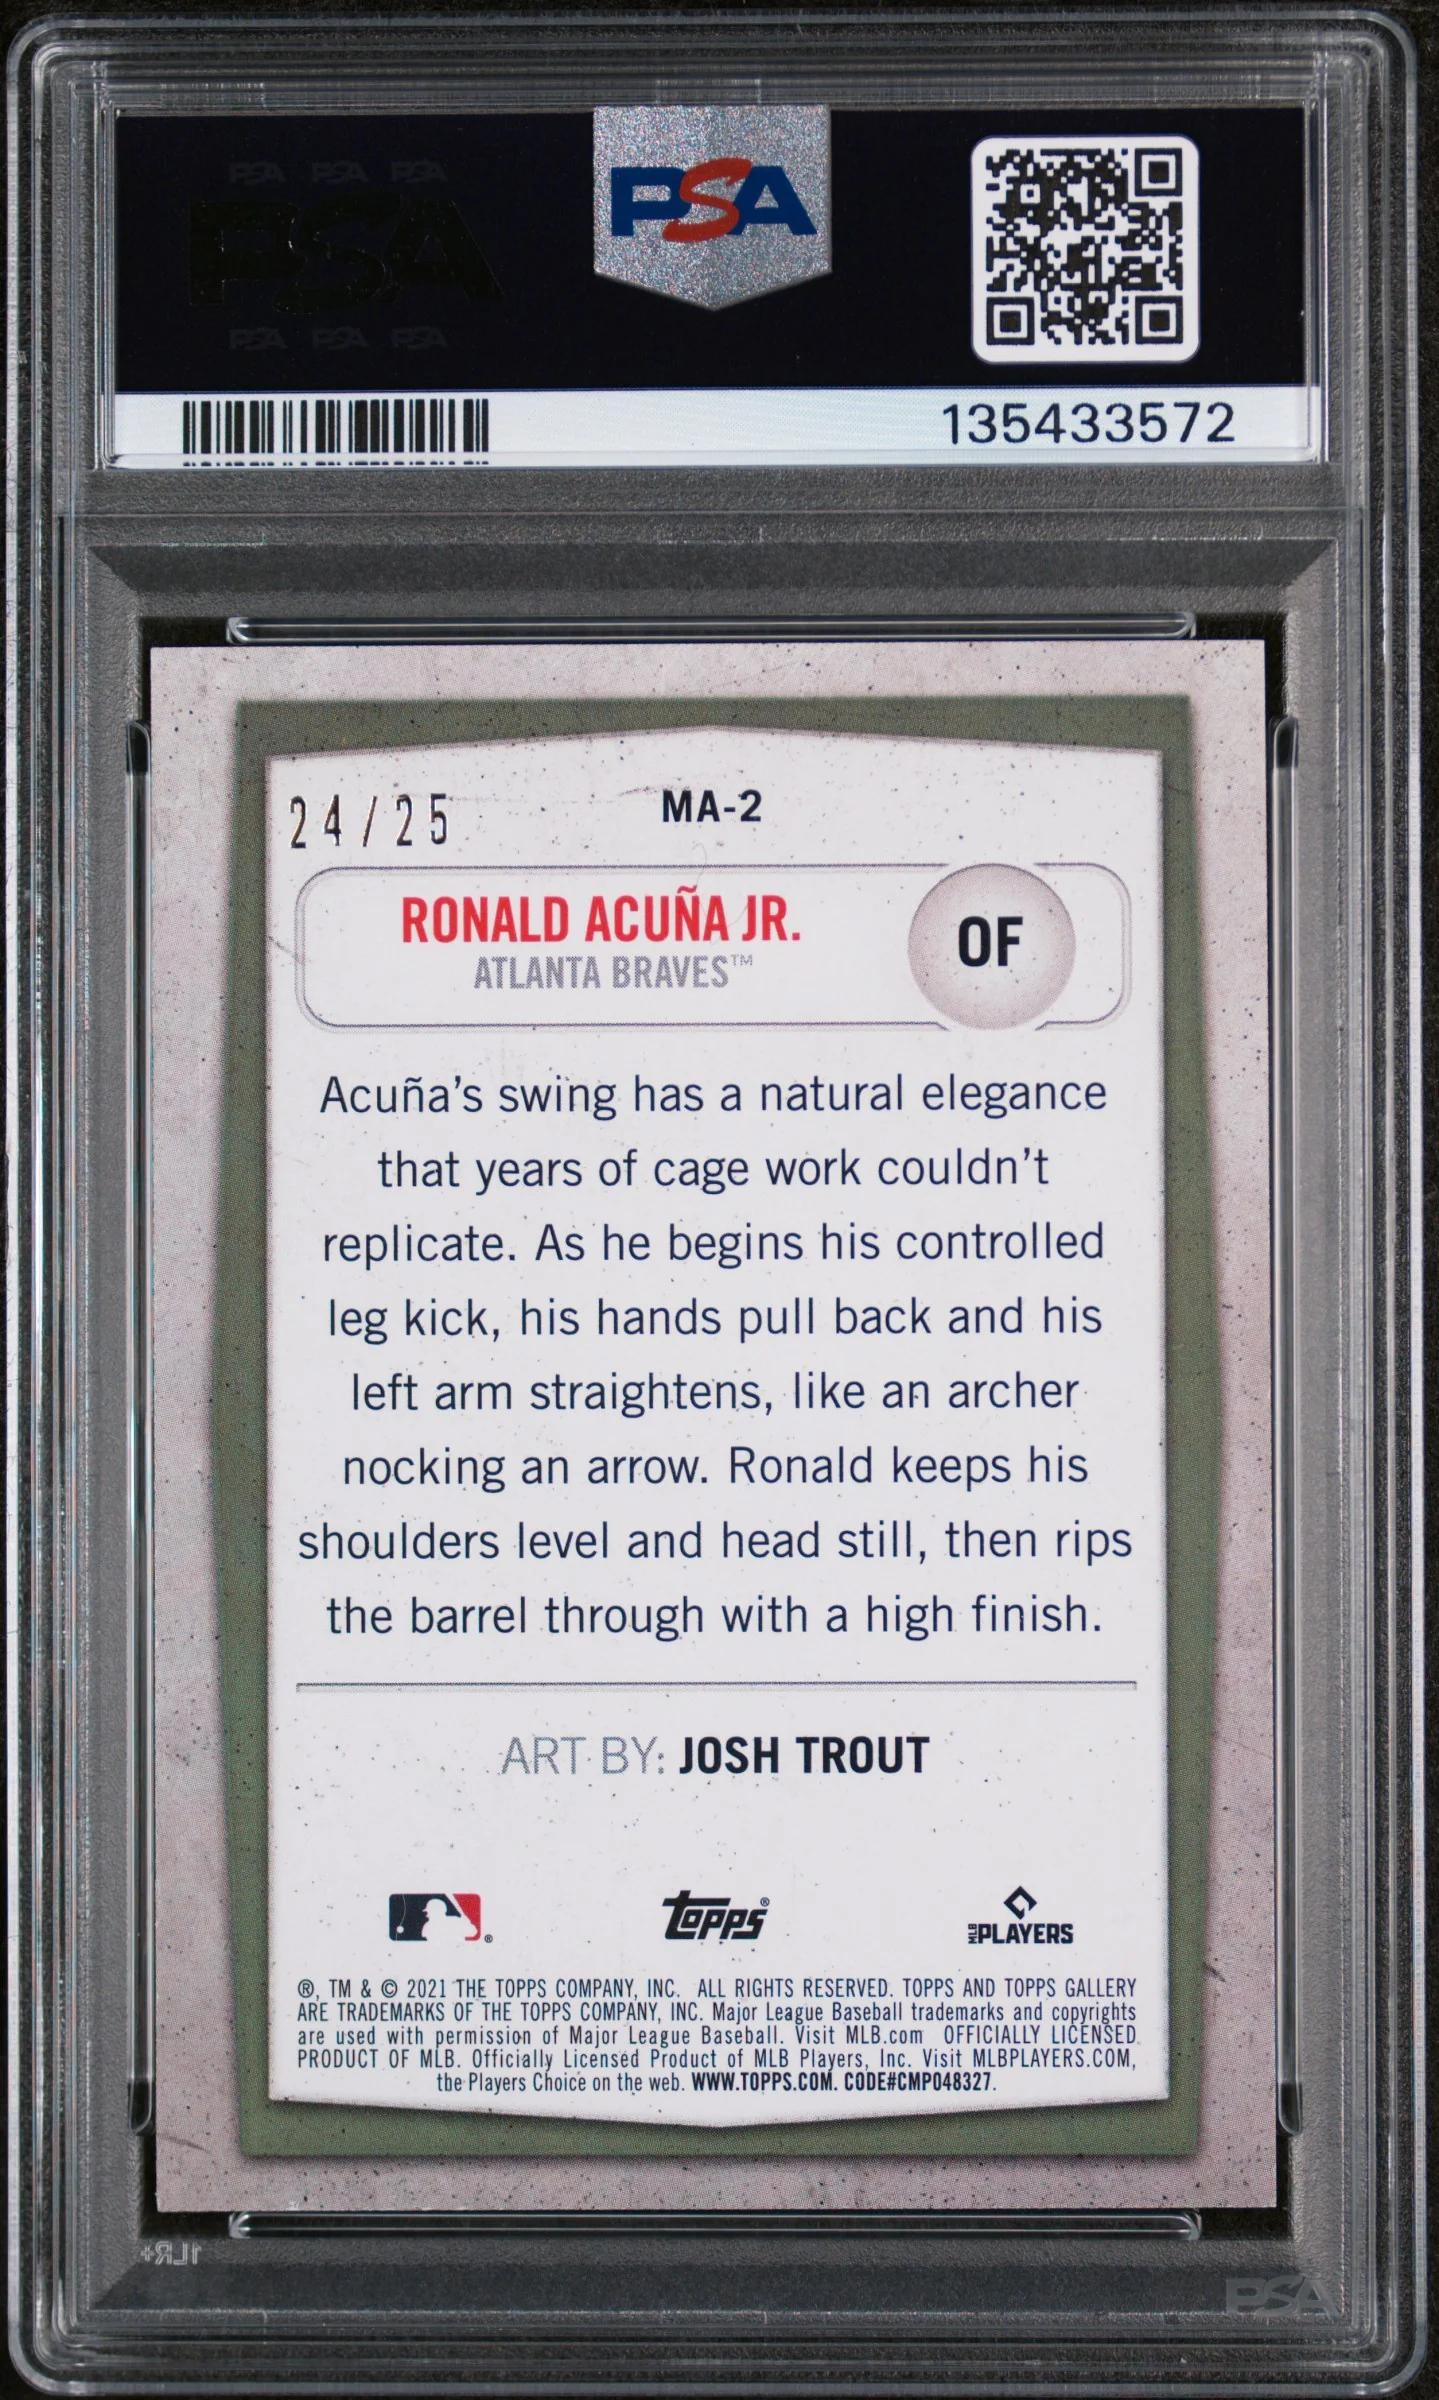 PSA PSA PSA
PSA
PSA PSA PSA
PSA
135433572
24/25
MA-2
RONALD ACUÑA JR.
ATLANTA BRAVES™
OF
Acuña's swing has a natural elegance
that years of cage work couldn't
replicate. As he begins his controlled
leg kick, his hands pull back and his
left arm straightens, like an archer
nocking an arrow. Ronald keeps his
shoulders level and head still, then rips
the barrel through with a high finish.
ART BY: JOSH TROUT
®
topps®
MLB PLAYERS
®, TM & © 2021 THE TOPPS COMPANY, INC. ALL RIGHTS RESERVED. TOPPS AND TOPPS GALLERY
ARE TRADEMARKS OF THE TOPPS COMPANY, INC. Major League Baseball trademarks and copyrights
are used with permission of Major League Baseball. Visit MLB.com OFFICIALLY LICENSED
PRODUCT OF MLB. Officially Licensed Product of MLB Players, Inc. Visit MLBPLAYERS.COM,
the Players Choice on the web. WWW.TOPPS.COM. CODE#CMP048327.
1LR+
PSA